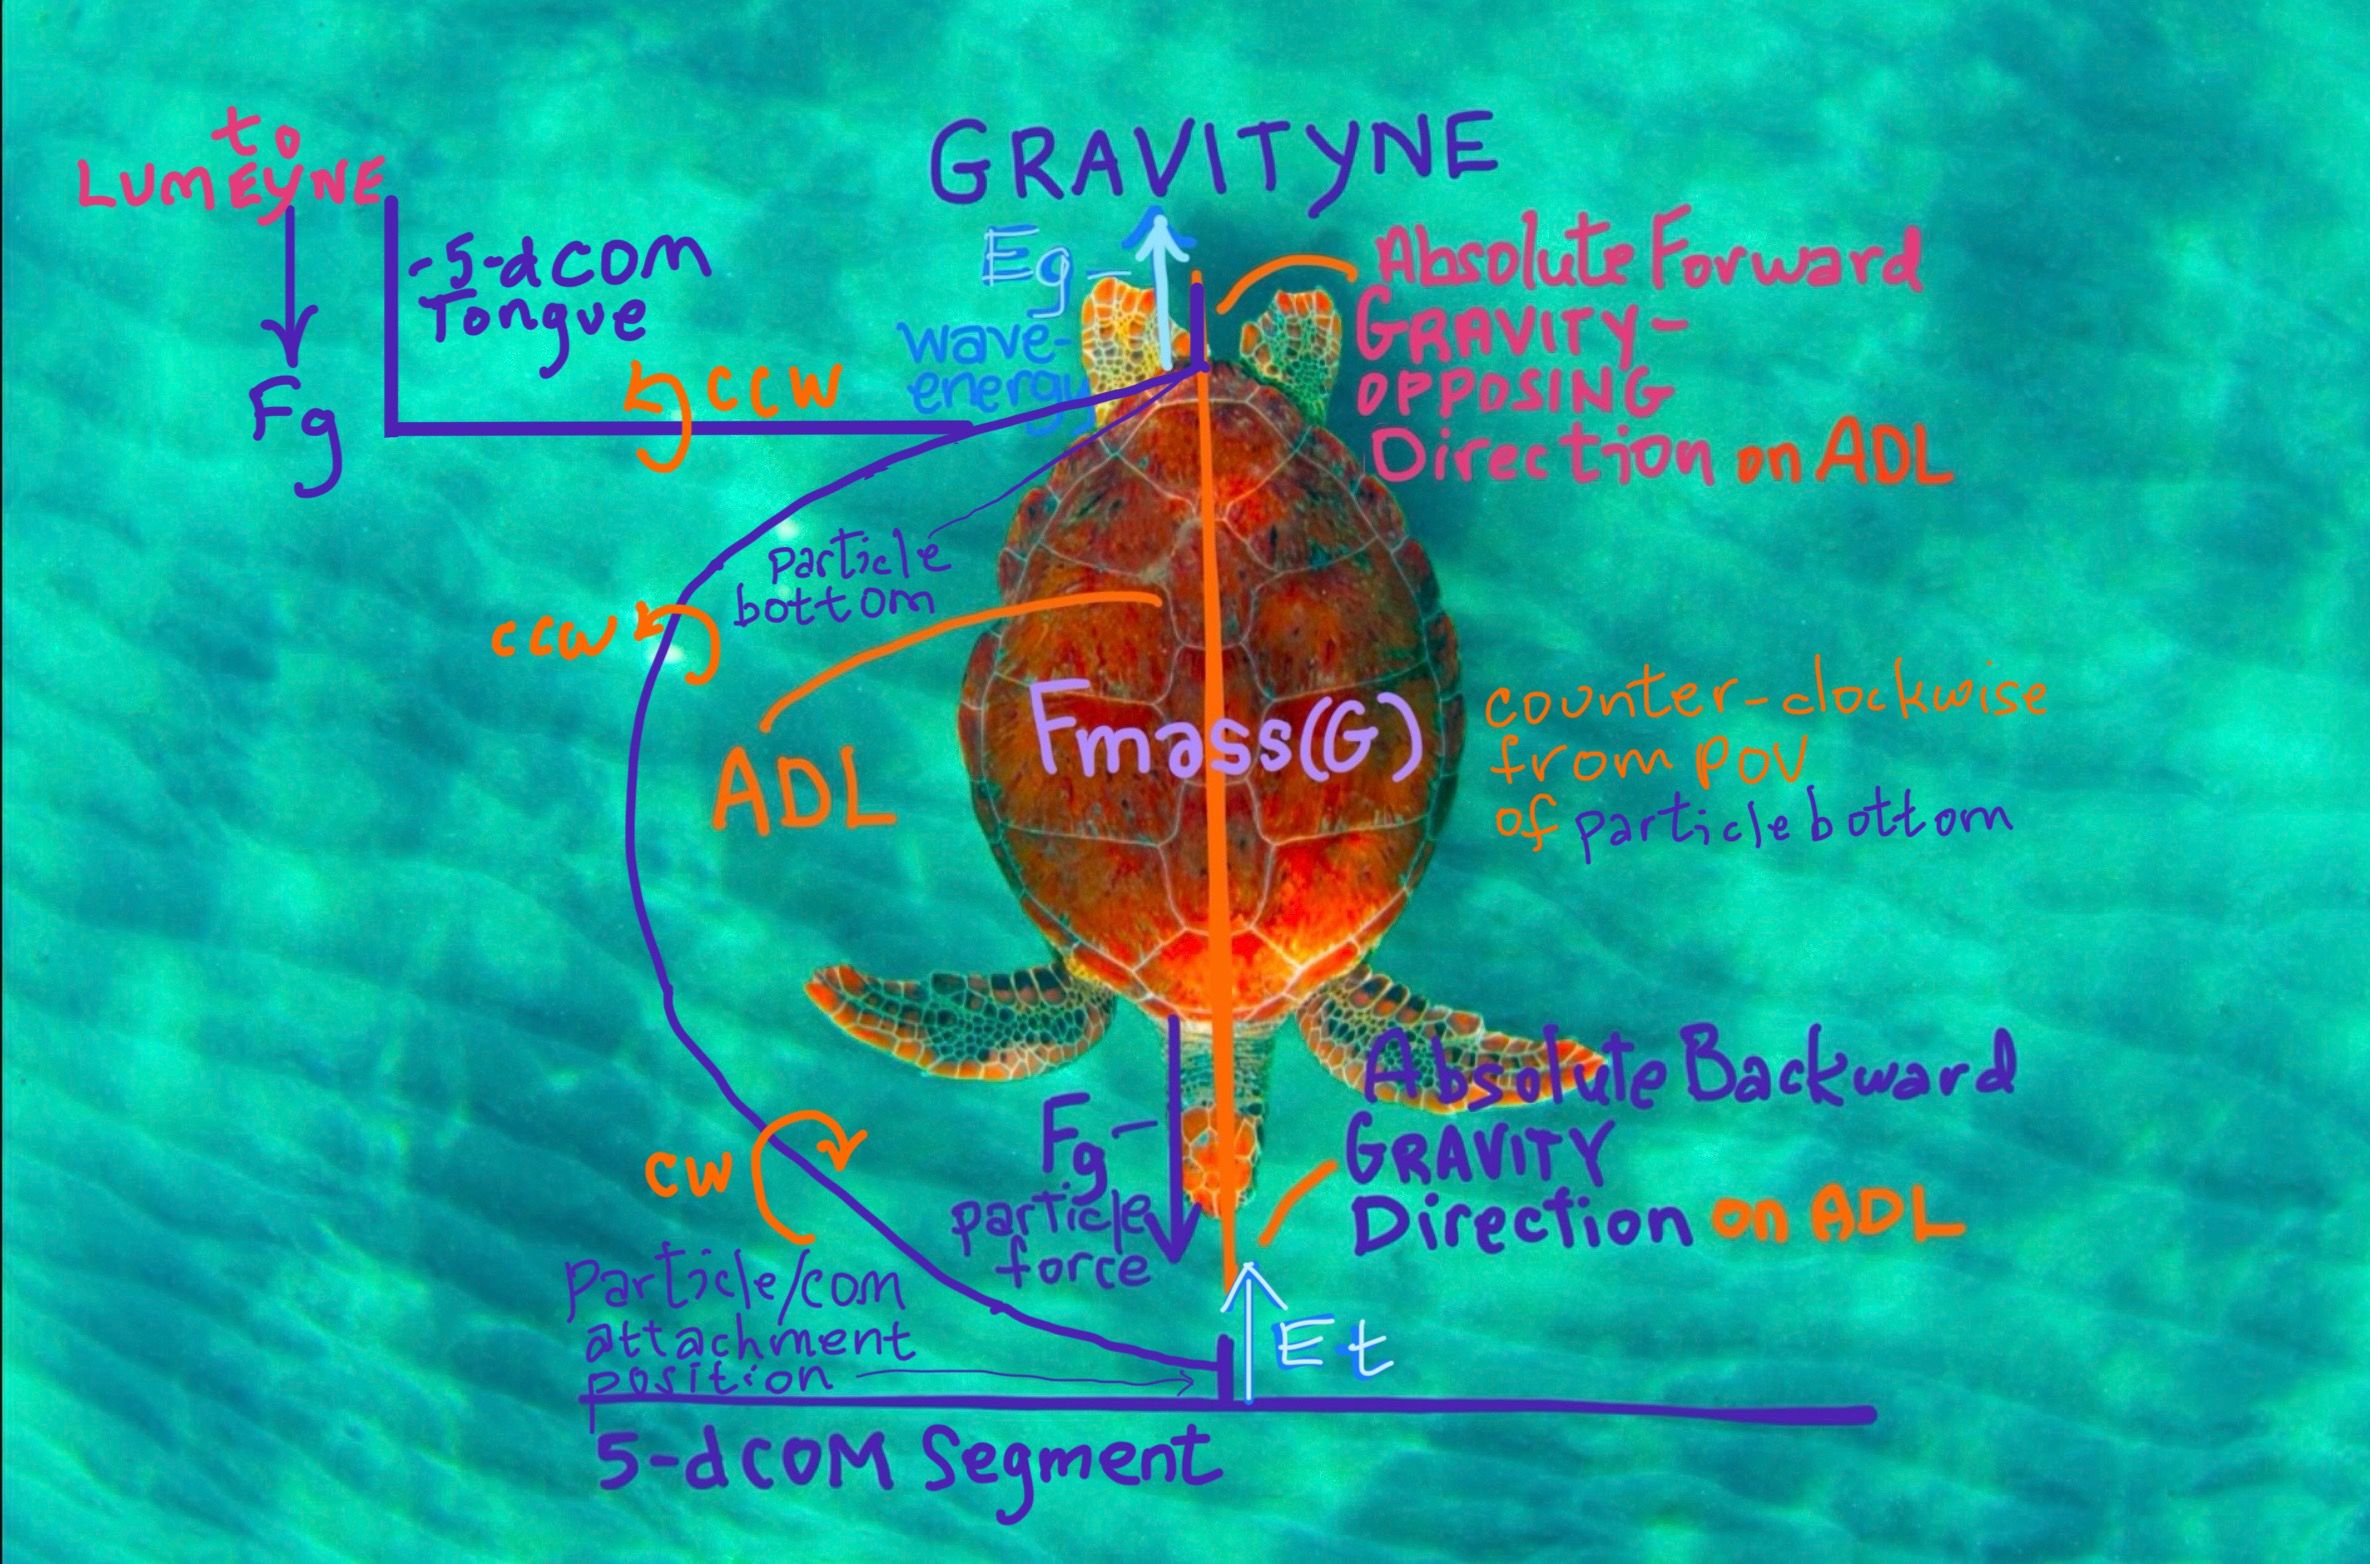 to
LUMEYNE
Fg
-5-dCOM
Tongue
CCW
GRAVITYNE
Eg-
wave-
energy
Absolute Forward
GRAVITY-
OPPOSING
Direction on ADL
particle
bottom
CCW
ADL
Fmass(G)
counter-clockwise
from POV
of particle bottom
CW
Fg-
particle
force
Absolute Backward
GRAVITY
Direction on ADL
Particle/com
attachment
position
Et
5-dCOM Segment